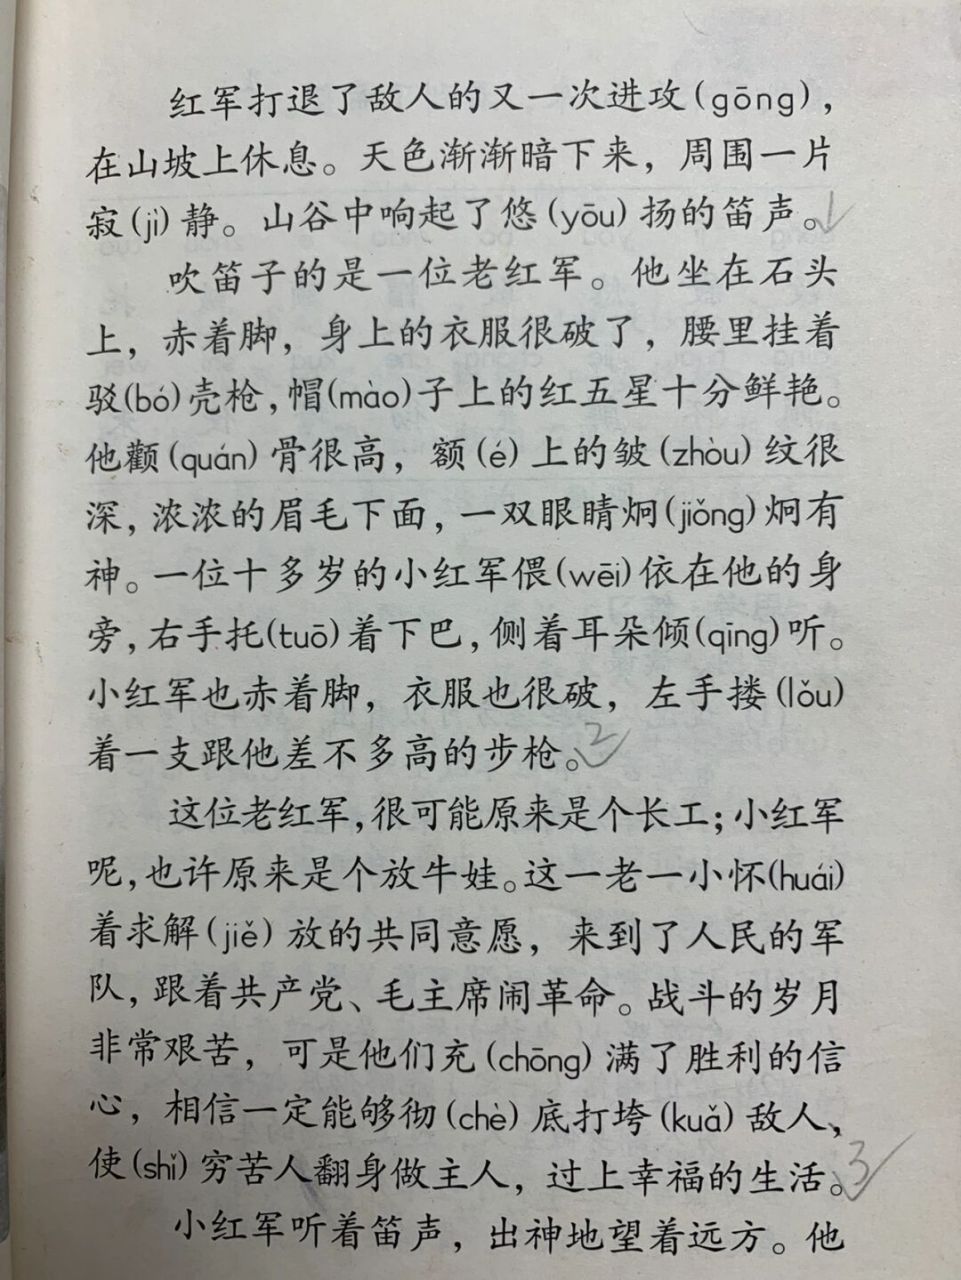 红军打退了敌人的又一次进攻(gōng),
在山坡上休息。天色渐渐暗下来,周围一片
寂(jì)静。山谷中响起了悠(yōu)扬的笛声。1
吹笛子的是一位老红军。他坐在石头
上,赤着脚,身上的衣服很破了,腰里挂着
驳(bó)壳枪,帽(mào)子上的红五星十分鲜艳。
他颧(quán)骨很高,额(é)上的皱(zhòu)纹很
深,浓浓的眉毛下面,一双眼睛炯(jiǒng)炯有
神。一位十多岁的小红军偎(wēi)依在他的身
旁,右手托(tuō)着下巴,侧着耳朵倾(qīng)听。
小红军也赤着脚,衣服也很破,左手搂(lǒu)
着一支跟他差不多高的步枪。2
这位老红军,很可能原来是个长工;小红军
呢,也许原来是个放牛娃。这一老一小怀(huái)
着求解(jiě)放的共同意愿,来到了人民的军
队,跟着共产党、毛主席闹革命。战斗的岁月
非常艰苦,可是他们充(chōng)满了胜利的信
心,相信一定能够彻(chè)底打垮(kuǎ)敌人,
使(shǐ)穷苦人翻身做主人,过上幸福的生活。3
小红军听着笛声,出神地望着远方。他